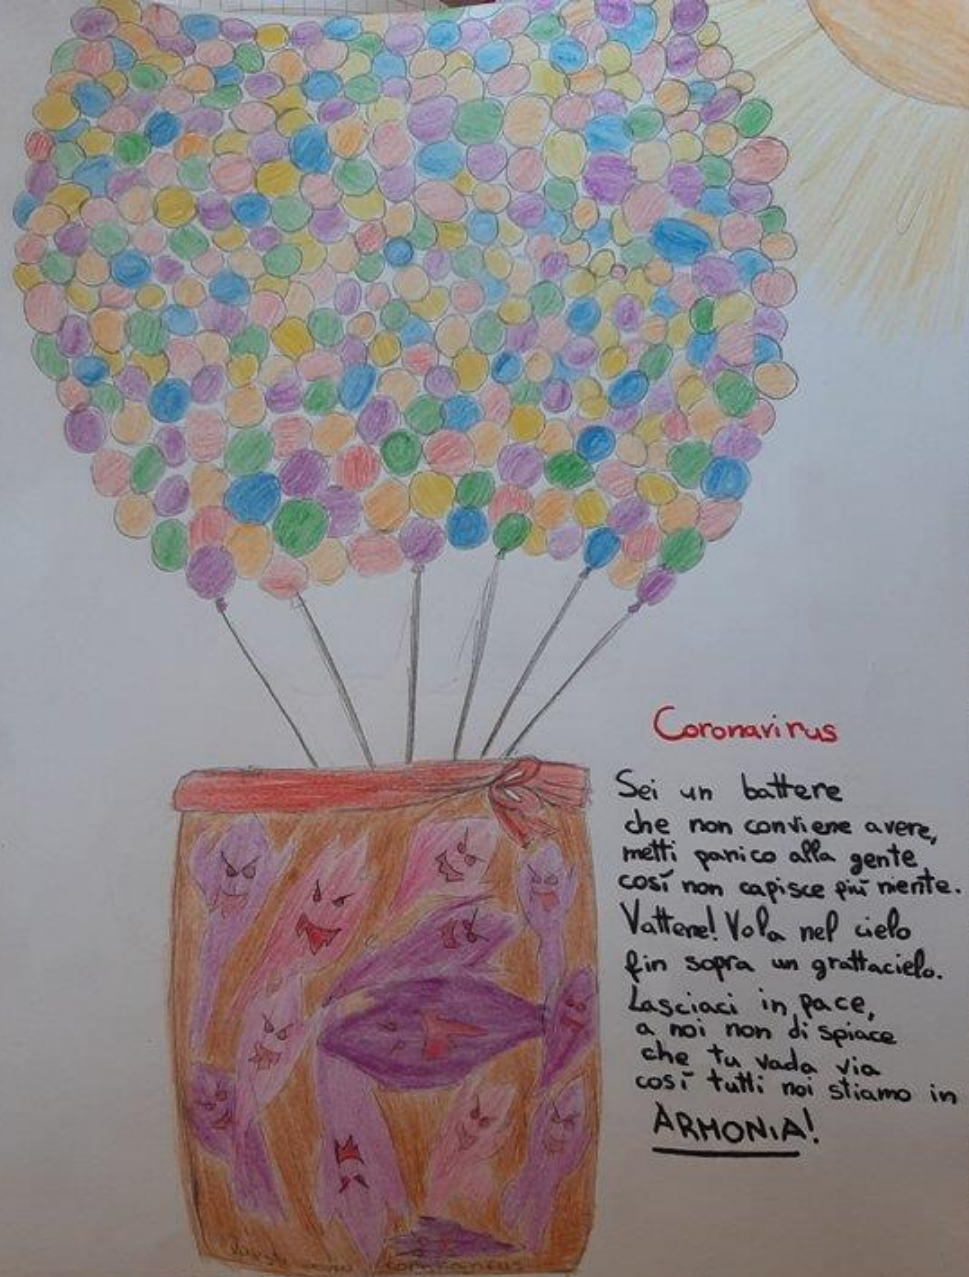 Coronavirus
Sei un battere
che non conviene avere,
metti panico alla gente
così non capisce più niente.
Vattene! Vola nel cielo
fin sopra un grattacielo.
Lasciaci in pace,
a noi non dispiace
che tu vada via
così tutti noi stiamo in
ARMONIA!
sono coronavirus